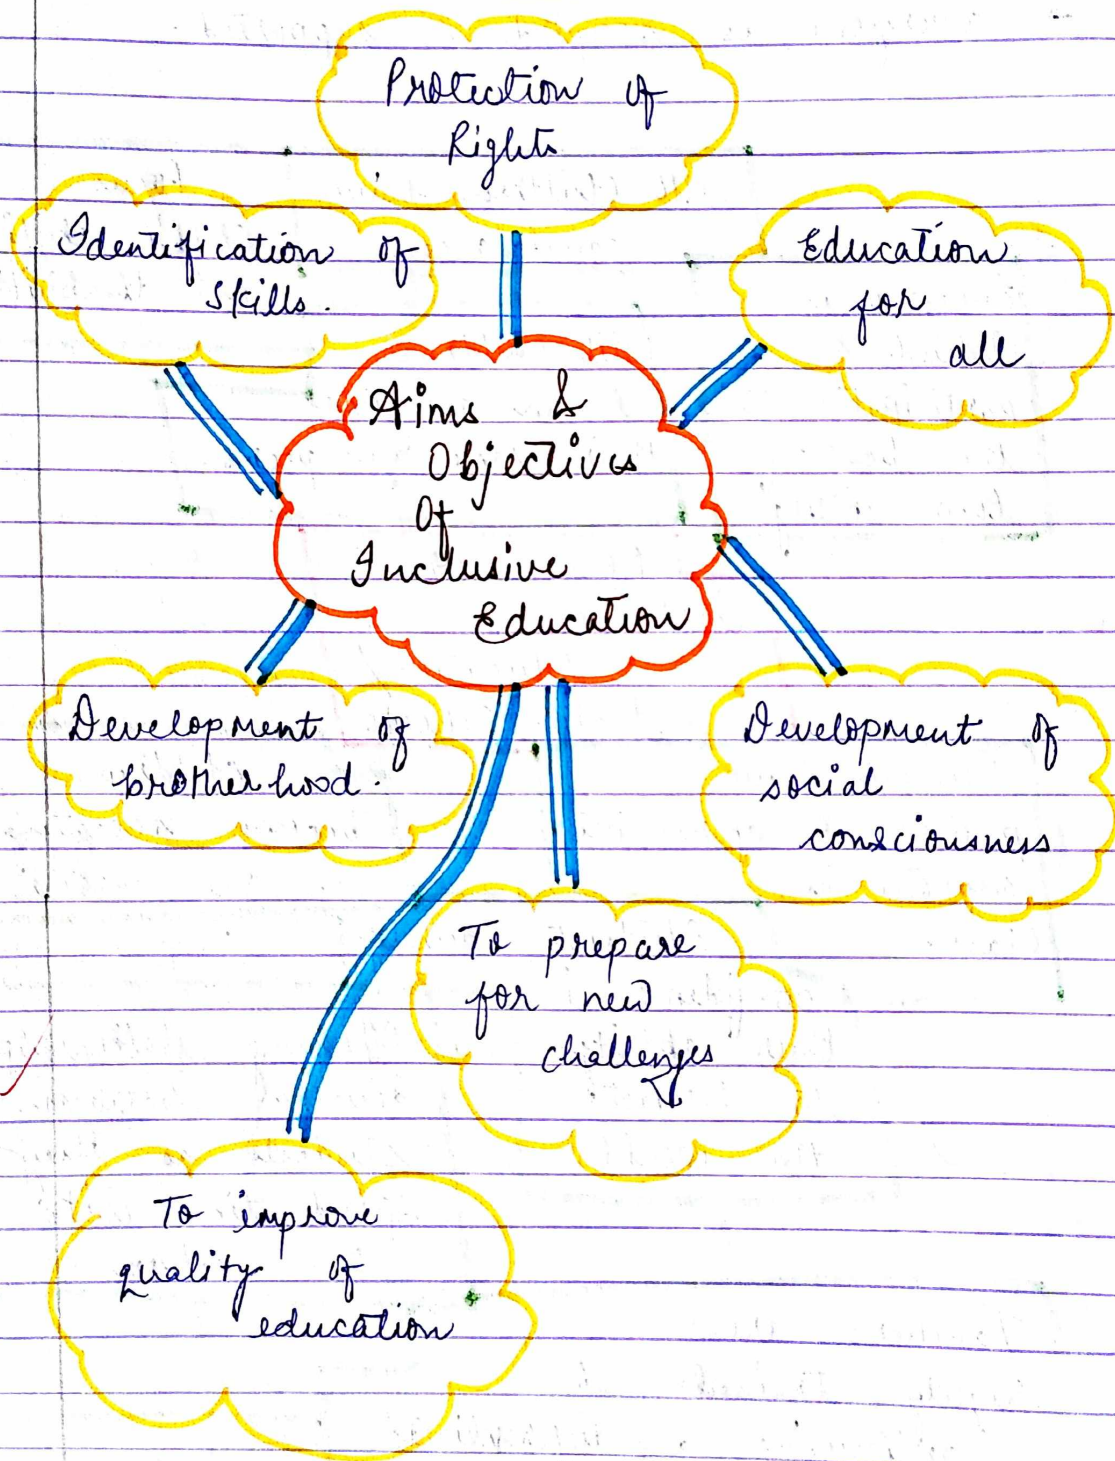 Protection of
Rights
Identification of
Skills.
Education
for
all
Aims &
Objectives
Of
Inclusive
Education
Development of
brotherhood.
Development of
social
consciousness
To prepare
for new
challenges
To improve
quality of
education